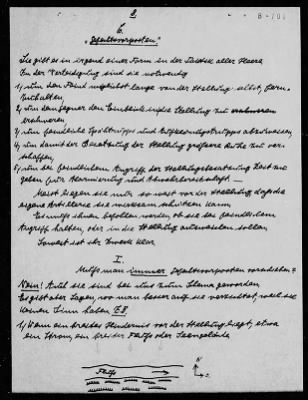 2
B-701
6.
"Gefechtsvorposten"
Sie gibt es in irgend einer Form in der Taktik aller Heere
In der Verteidigung sind sie notwendig
1) um den Feind möglichst lange von der Stellung selbst, fern-
zuhalten,
2) um dem Gegner den Einblick in die Stellung zu erschweren
erschweren
3) um feindliche Spähtrupps und Aufklärungstrupps abzuweisen,
4) um damit der Besatzung der Stellung grössere Ruhe zu ver-
schaffen,
5) um bei feindlichem Angriff der Stellungsbesatzung Zeit zu
geben für Alarmierung und Abwehrbereitschaft. —
Meist liegen sie nur so weit vor der Stellung, dass die
eigene Artillerie sie wirksam schützen kann.
Es muss ihnen befohlen werden, ob sie bei feindlichem
Angriff halten, oder in die Stellung ausweichen sollen.
Soweit ist ihr Zweck klar
I.
Muss man immer Gefechtsvorposten vorschieben?
Nein! Auch sie sind bei uns zum Schema geworden
Es gibt aber Lagen, wo man besser auf sie verzichtet, weil sie
keinen Sinn haben z.B.
1) Wenn ein breites Hindernis vor der Stellung liegt, etwa
ein Strom, ein breiter Fluss oder Seengelände
Fluss